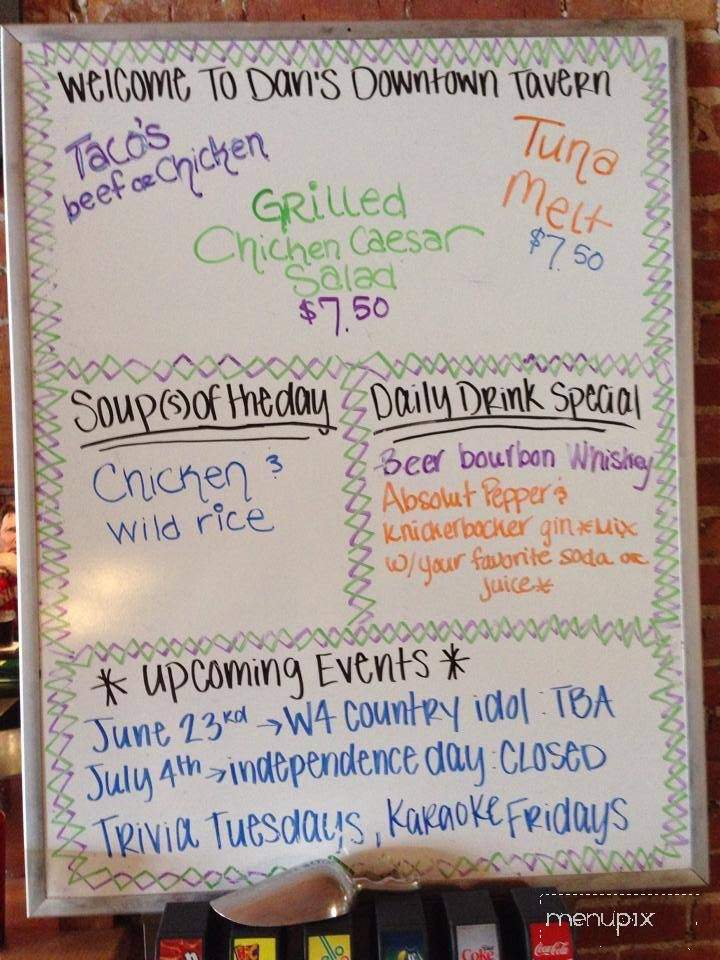 Welcome To Dan's Downtown Tavern
Taco's
beef or Chicken
Tuna
Melt
$7.50
Grilled
Chicken Caesar
Salad
$7.50
Soup(s) of the day
Chicken &
wild rice
Daily Drink Special
Beer bourbon Whiskey
Absolut Pepper &
knickerbocker gin *Mix
w/your favorite soda or
juice*
* Upcoming Events *
June 23rd → W4 Country idol : TBA
July 4th → independence day : CLOSED
Trivia Tuesdays, Karaoke Fridays
menupix
Coke
Coca-Cola